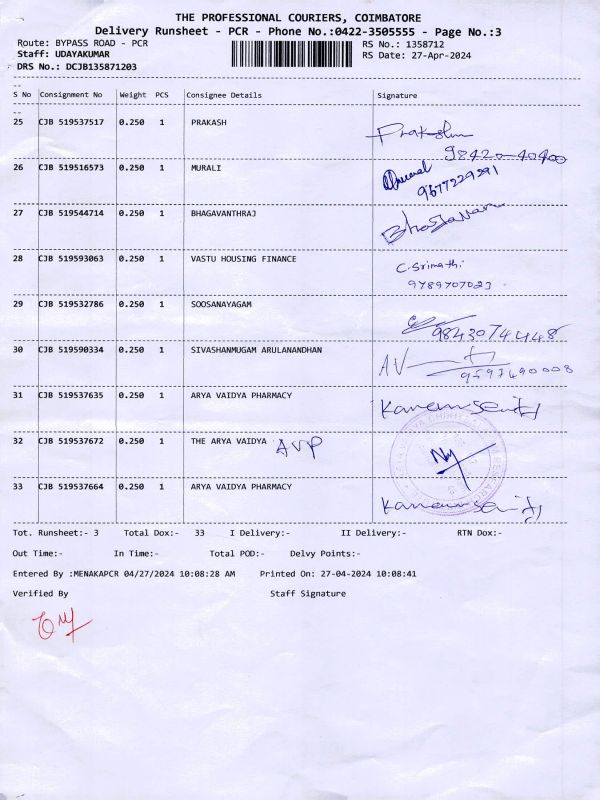 THE PROFESSIONAL COURIERS, COIMBATORE
Delivery Runsheet - PCR - Phone No.:0422-3505555 - Page No.:3
Route: BYPASS ROAD - PCR RS No.: 1358712
Staff: UDAYAKUMAR RS Date: 27-Apr-2024
DRS No.: DCJB135871203
S No Consignment No Weight PCS Consignee Details Signature
25 CJB 519537517 0.250 1 PRAKASH Prakash
98420-40400
26 CJB 519516573 0.250 1 MURALI
9677229291
27 CJB 519544714 0.250 1 BHAGAVANTHRAJ
28 CJB 519593063 0.250 1 VASTU HOUSING FINANCE C.Srimathi
9789707023
29 CJB 519532786 0.250 1 SOOSANAYAGAM
9843074448
30 CJB 519590334 0.250 1 SIVASHANMUGAM ARULANANDHAN AV
9597490008
31 CJB 519537635 0.250 1 ARYA VAIDYA PHARMACY
32 CJB 519537672 0.250 1 THE ARYA VAIDYA AVP
33 CJB 519537664 0.250 1 ARYA VAIDYA PHARMACY
Tot. Runsheet:- 3 Total Dox:- 33 I Delivery:- II Delivery:- RTN Dox:-
Out Time:- In Time:- Total POD:- Delvy Points:-
Entered By :MENAKAPCR 04/27/2024 10:08:28 AM Printed On: 27-04-2024 10:08:41
Verified By Staff Signature